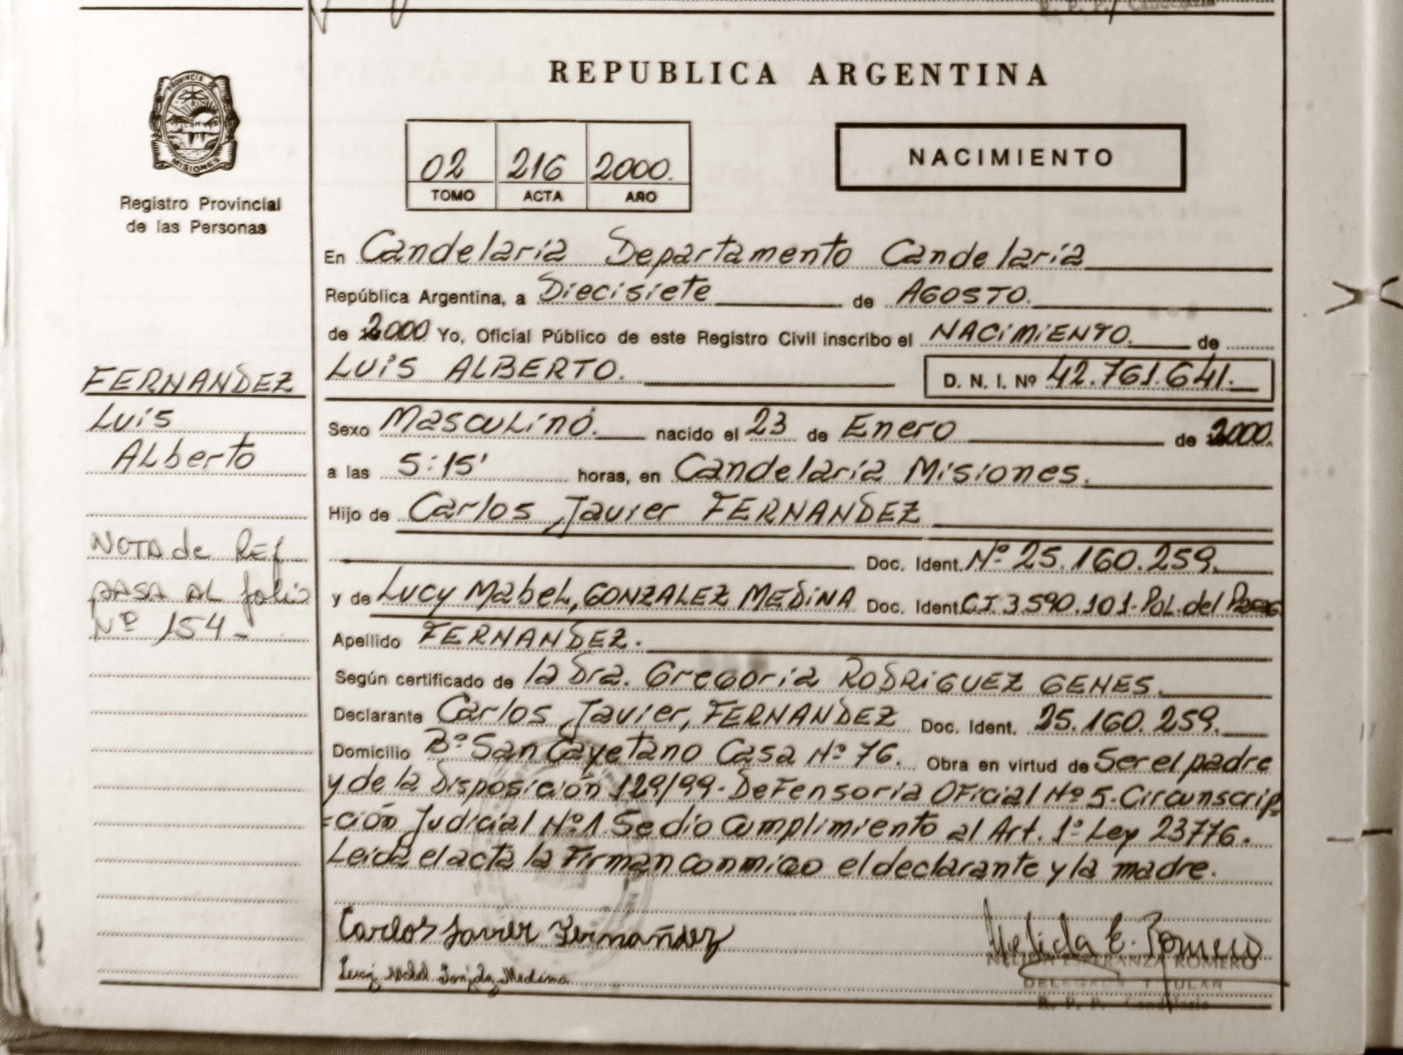 REPUBLICA ARGENTINA
PROVINCIA DE
MISIONES
Registro Provincial
de las Personas
02 216 2000.
TOMO ACTA AÑO
NACIMIENTO
En Candelaria Departamento Candelaria
República Argentina, a Diecisiete de AGOSTO.
de 2000 Yo, Oficial Público de este Registro Civil inscribo el NACIMIENTO. de
LUIS ALBERTO. D. N. I. Nº 42.761.641.
FERNANDEZ
Luis
Alberto
Sexo Masculino. nacido el 23 de Enero de 2000.
a las 5:15' horas, en Candelaria Misiones.
Hijo de Carlos Javier FERNANDEZ
Doc. Ident. Nº 25.160.259.
NOTA de REF
PASA AL folio
Nº 154-
y de Lucy Mabel, GONZALEZ MEDINA Doc. Ident. CI 3.590.101-Pol. del
Apellido FERNANDEZ.
Según certificado de la Dra. Gregoria RODRIGUEZ GENES.
Declarante Carlos Javier, FERNANDEZ Doc. Ident. 25.160.259.
Domicilio Bº San Cayetano Casa Nº 76. Obra en virtud de Ser el padre
y de la Disposición 129/99-Defensoria Oficial Nº 5-Circunscrip
=ción Judicial Nº 1 Se dio Cumplimiento al Art. 1º Ley 23776.
Leida el acta la Firman conmigo el declarante y la madre.
Carlos Javier Fernandez
Lucy Mabel Gonzalez Medina
Nelida E. Romero
NELIDA ESPERANZA ROMERO
DELEGADA TITULAR
R. P. P. Candelaria